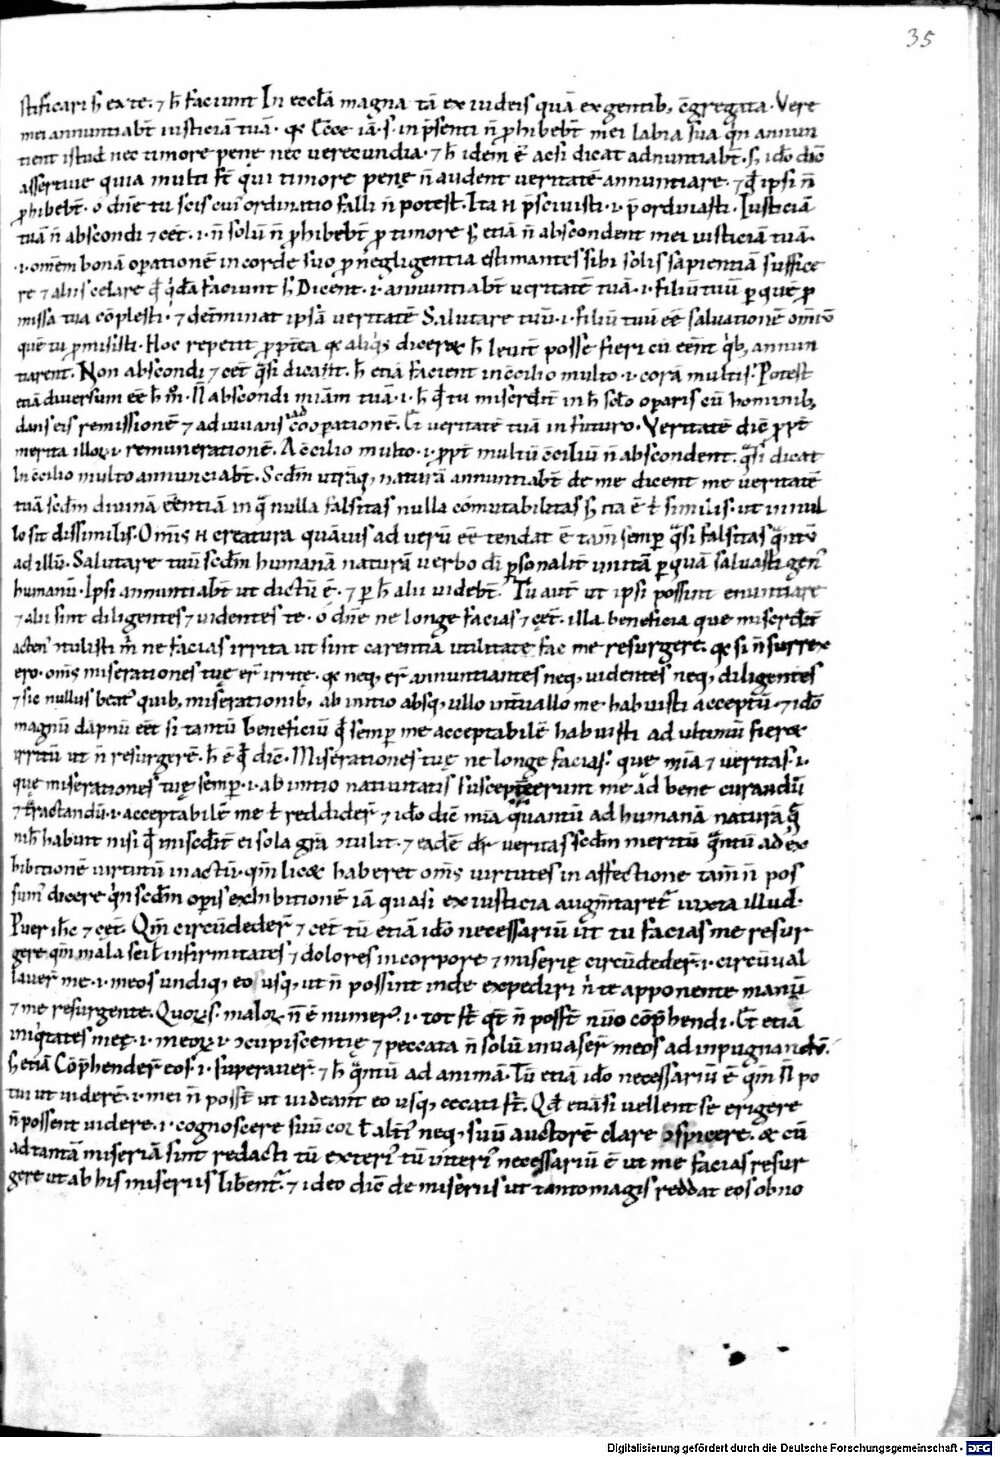 35
stificari sꝫ ex te. ⁊ h̄ faciunt In eccl̄a magna tā ex iudeis quā ex gentib; c̄gregata. Vere
mei annuntiab̄t iusticiā tuā. qꝫ Ecce iā .s. in p̄senti n̄ ꝓhibeb̄t mei labia sua qͥn annun
tient istud nec timore penę nec uerecundia. ⁊ h̄ idem ē acsi dicat adnuntiab̄t. sꝫ idō dic̄o
assertiue quia multi st̄ qui timore penę n̄ audent ueritatē annuntiare. ⁊ qd̄ ipsi n̄
ꝓhibeb̄t. o dn̄e tu scis cui ordinatio falli n̄ potest. Ita n̄ p̄sciuisti .i. p̄ordinasti. Iusticiā
tuā n̄ abscondi ⁊ cēt. .i. n̄ solū n̄ ꝓhibeb̄t ꝓ timore sꝫ etiā n̄ abscondent mei iusticiā tuā.
.i. om̄em bonā oꝑationē in corde suo ꝓ negligentia estimantes sibi solis sapientiā suffice
re ⁊ aliis celare qd̄ qͥdā faciunt sꝫ Dicent .i. annuntiab̄t ueritatē tuā .i. filiū tuū ꝑ quē ꝓ
missa tua cōplesti. ⁊ det̄minat ipsā ueritatē Salutare tuū .i. filiū tuū eē saluationē om̄iū
quē tu ꝓmisisti. Hoc repetit ꝓpt̄ea qꝫ aliqͥs diceret h̄ leuit̄ posse fieri cū eēnt qͥb; annun
tiarent. Non abscondi ⁊ cēt qͣsi dicant. h̄ etiā facient in c̄cilio multo .i. corā multis. Potest
etiā diuersum eē h̄ m̊. N̄ abscondi mīam tuā .i. h̄ qd̄ tu misered̄it in h̄ sc̄lo oꝑaris cū hominib;
dans eis remissionē ⁊ adiuuans ad cooꝑationē. Et ueritatē tuā in futuro. Veritatē dic̄ ꝓpt̄
merita illoꝝ .i. remunerationē. A c̄cilio multo .i. ꝓpt̄ multū c̄ciliū n̄ abscondent. qͣsi dicat
In c̄cilio multo annunciab̄t. Scd̄m utrāq; naturā annuntiab̄t de me dicent me ueritatē
tuā scd̄m diuinā eēntiā in qͣ nulla falsitas nulla cōmutabilitas sꝫ ita ē t̄ similis. ut in nul
lo sit dissimilis. Om̄is n̄ creatura quāuis ad uerū eē tendat ē tam̄ semꝑ qͣsi falsitas qͣntū
ad illū. Salutare tuū scd̄m humanā naturā uerbo dī ꝑsonalit̄ unitā ꝑ quā saluasti gen⁹
humanū. Ipsi annuntiab̄t ut dictū ē. ⁊ ꝑ h̄ alii uideb̄t. Tu aut̄ ut ipsi possint enuntiare
⁊ alii sint diligentes ⁊ uidentes te. o dn̄e ne longe facias ⁊ cęt. illa beneficia que misered̄it
ne facias irrita ut sint carentia utilitate fac me resurgere. qꝫ si n̄ surrex
ero. om̄s miserationes tuę er̄ irrite. qꝫ neq; er̄ annuntiantes neq; uidentes neq; diligentes
⁊ sic nullus beat⁹ quib; miserationib; ab initio absq; ullo int̄uallo me habuisti acceptū. ⁊ idō
magnū dāpnū eēt si tantū beneficiū qd̄ semꝑ me acceptabilē habuisti ad ultimū fieret
irritū ut n̄ resurgerē. h̄ ē qd̄ dic̄. Miserationes tuę ne longe facias. que mīa ⁊ ueritas .i.
quę miserationes tuę semꝑ .i. ab initio natiuitatis susceperunt me ad bene curandū
⁊ tractandū .i. acceptabilē me t̄ reddider̄ ⁊ idō dic̄ mīa quantū ad humanā naturā qͣ
nih̄ habuit nisi qd̄ mised̄it ei sola grā ɔtulit. ⁊ eadē dr̄ ueritas scd̄m meritū qͣntū ad ex
hibitionē uirtutū in actū. qm̄ licet haberet om̄s uirtutes in affectione tam̄ n̄ pos
sum⁹ dicere qͥn scd̄m oꝑis exhibitionē iā quasi ex iusticia augm̄taret̄ iuxta illud.
Puer ih̄c ⁊ cęt. Qm̄ circūdeder̄ ⁊ cet̄ tū etiā idō necessariū ut tu facias me resur
gere. qm̄ mala scil̄ infirmitates ⁊ dolores in corpore ⁊ miserię circūdeder̄ .i. circūual
lauer̄ me .i. meos undiq; eo usq; ut n̄ possint inde expediri n̄ te apponente manū
⁊ me resurgente. Quoꝝ maloꝝ n̄ ē numer⁹ .i. tot st̄ qt̄ n̄ poss̄t nūo cōp̄hendi. Et etiā
iniqͥtates meę .i. meoꝝ .i. ɔcupiscentię ⁊ peccata n̄ solū inuaser̄ meos ad inpugnandū.
sꝫ etiā Cōp̄hender̄ eos .i. superauer̄. ⁊ h̄ qͣntū ad animā. Tū etiā idō necessariū ē qm̄ n̄ po
tui ut uiderē .i. mei n̄ poss̄t ut uideant eo usq; cecati st̄. Qd̄ etiāsi uellent se erigere
n̄ possent uidere .i. cognoscere suū cor t̄ alt̄i⁹ neq; suū auctorē clare ɔspicere. et cū
ad tantā miseriā sint redacti tū exteri⁹ tū interi⁹ necessariū ē ut me facias resur
gere ut ab his miseriis liberent̄. ⁊ ideo dic̄ de miseriis ut tanto magis reddat eos obno
Digitalisierung gefördert durch die Deutsche Forschungsgemeinschaft - DFG